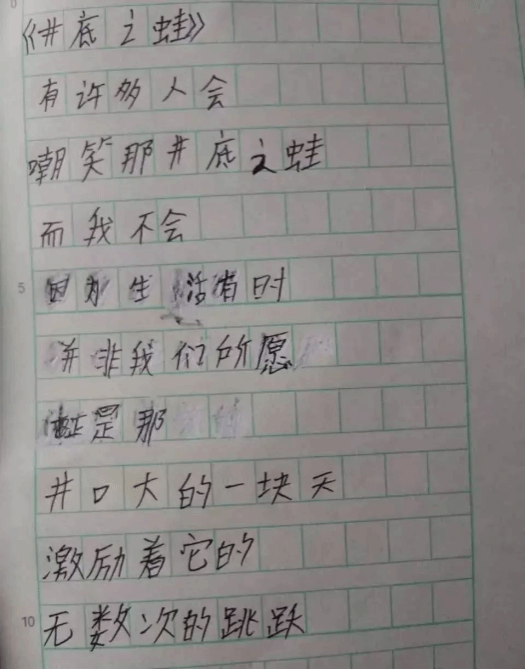 《井底之蛙》
有许多人会
嘲笑那井底之蛙
而我不会
5 因为生活有时
并非我们所愿
正是那
井口大的一块天
激励着它的
10 无数次的跳跃